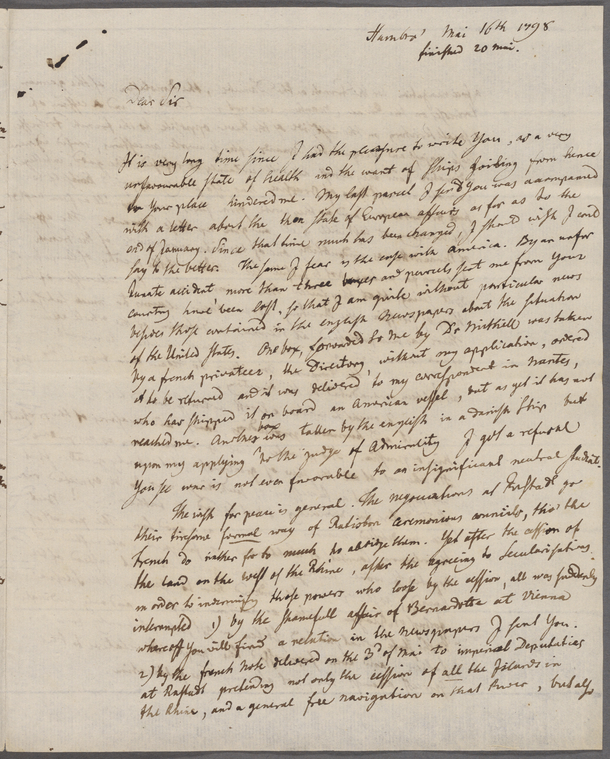 Hambro' Mai 16th 1798
finished 20 mai.
Dear Sir
It is very long time since I had the pleasure to write You, as a very
unfavourable state of health and the want of Ships Going from hence
to Your place hindered me. My last parcel I send You was accompanied
with a letter about the then State of European affairs as far as to the
end of January. Since that time much has been changed, I should wish I could
say to the better. The same I fear is the case with America. By an unfor
tunate accident more than three boxes and parcels sent me from Your
country have been lost, so that I am quite without particular news
besides those contained in the english Newspapers about the situation
of the United States. One box, forwarded to me by Dr Mitchell was taken
by a french privateer, the Directory, without my application, ordered
it to be returned and it was delivered to my correspondent in Nantes,
who has shipped it on board an American vessel, but as yet it has not
reached me. Another box was taken by the english in a danish Ship but
upon my applying to the judge of Admirality I got a refusal
You see war is not even favorable to an insignificant neutral
The wish for peace is general. The negociations at Rastadt go
their tiresome formal way of Ratisbon ceremonious councils, tho the
french do rather so to much to abridge them. Yet after the cession of
the land on the west of the Rhine, after the agreeing to Secularisations
in order to indemnify those powers who loose by the cession, all was suddenly
interrupted 1) by the shamefull affair of Bernadotte at Vienna
whereoff You will find a relation in the newspapers I sent You.
2) by the french Note delivered on the 3d of Mai to imperial Deputation
at Rastadt pretending not only the cession of all the Islands in
the Rhine, and a general free navigation on that River, but also